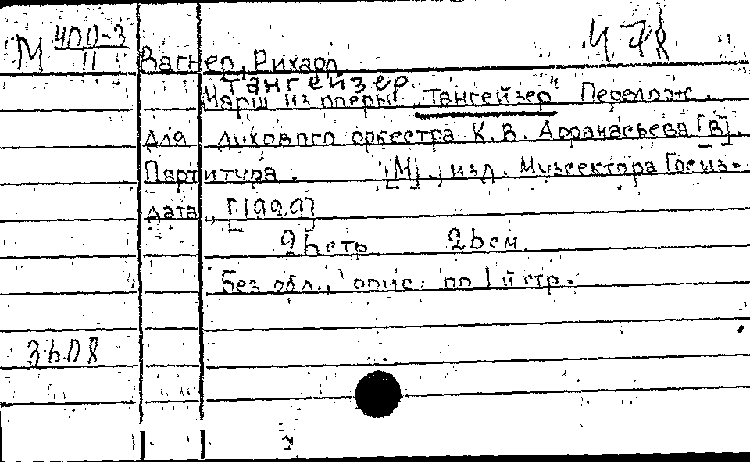 М 400-3
II
478
Вагнер, Рихард
Тангейзер
Марш из оперы „Тангейзер" Перелож.
для духового оркестра К. В. Афанасьева [В].
Партитура. [М]., изд. Музсектора Госиз-
дата,
26 стр. 26 см.
Без обл., опис. по 1й стр.
3608